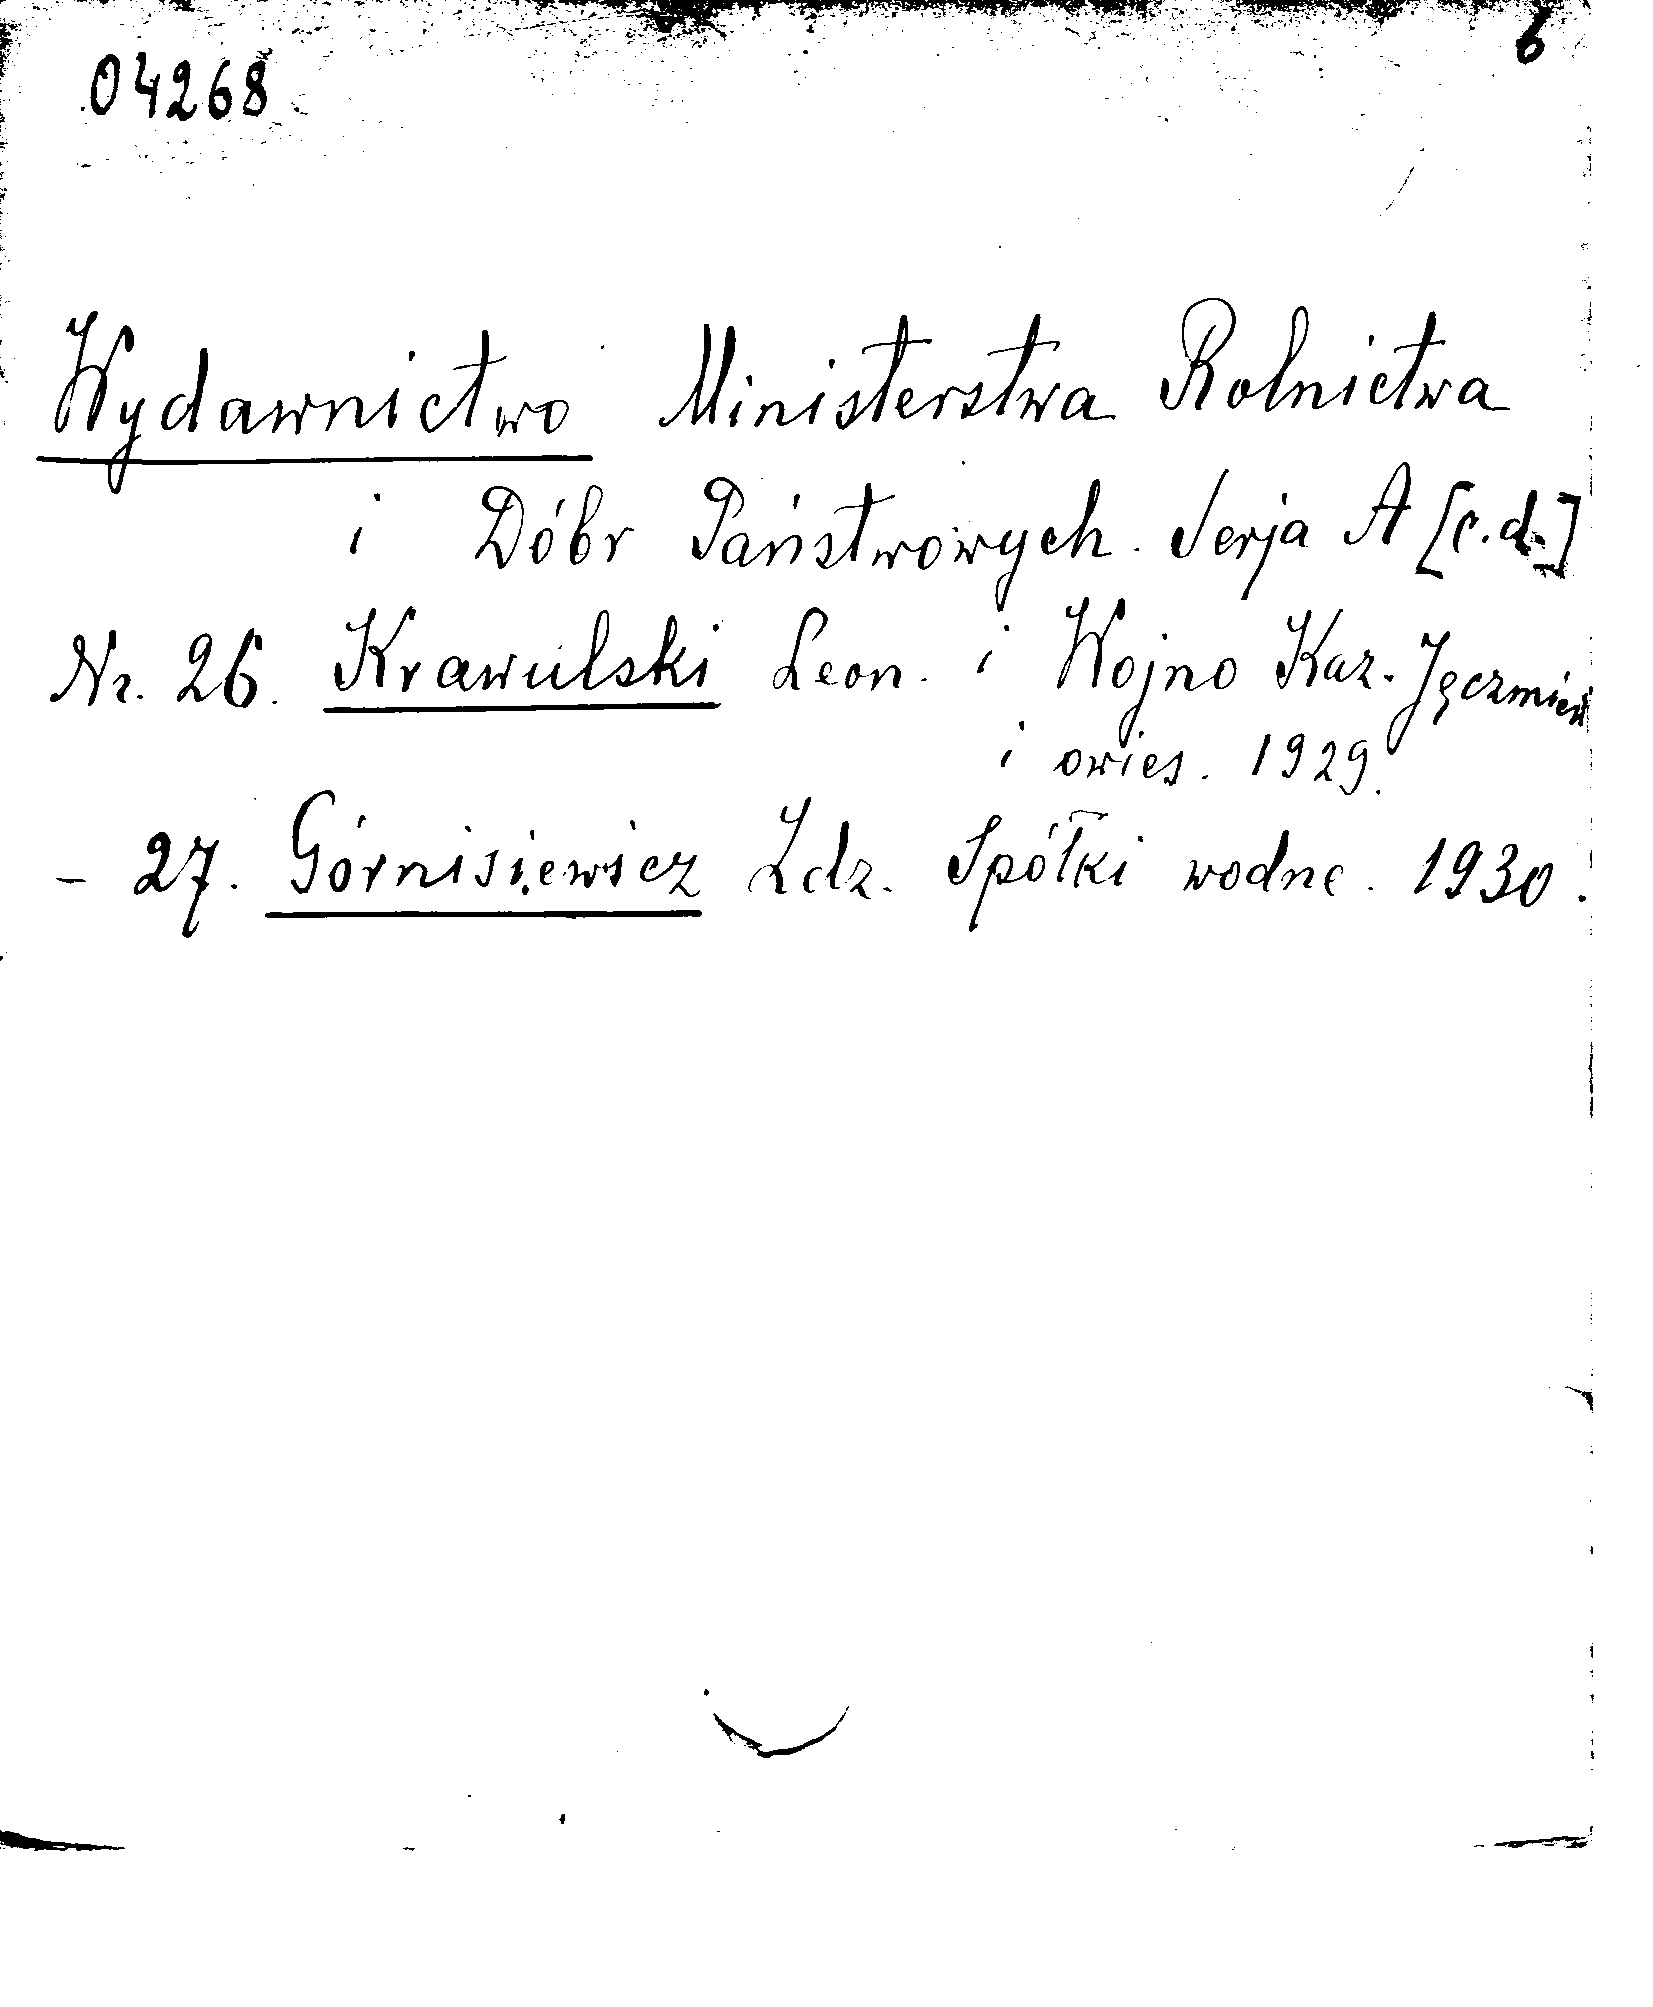 04268
6
Wydawnictwo Ministerstwa Rolnictwa
i Dóbr Państwowych. Serja A [c.d.]
Nr. 26. Krawulski Leon. i Wojno Kaz. Jęczmień
i owies. 1929.
- 27. Górnisiewicz Zdz. Spółki wodne. 1930.